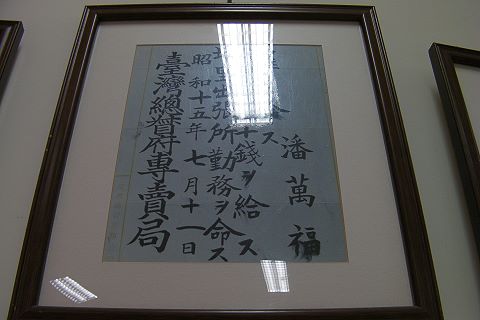 潘萬福
命ス
十錢ヲ給ス
埔里出張所勤務ヲ命ス
昭和十五年七月十一日
臺灣總督府專賣局